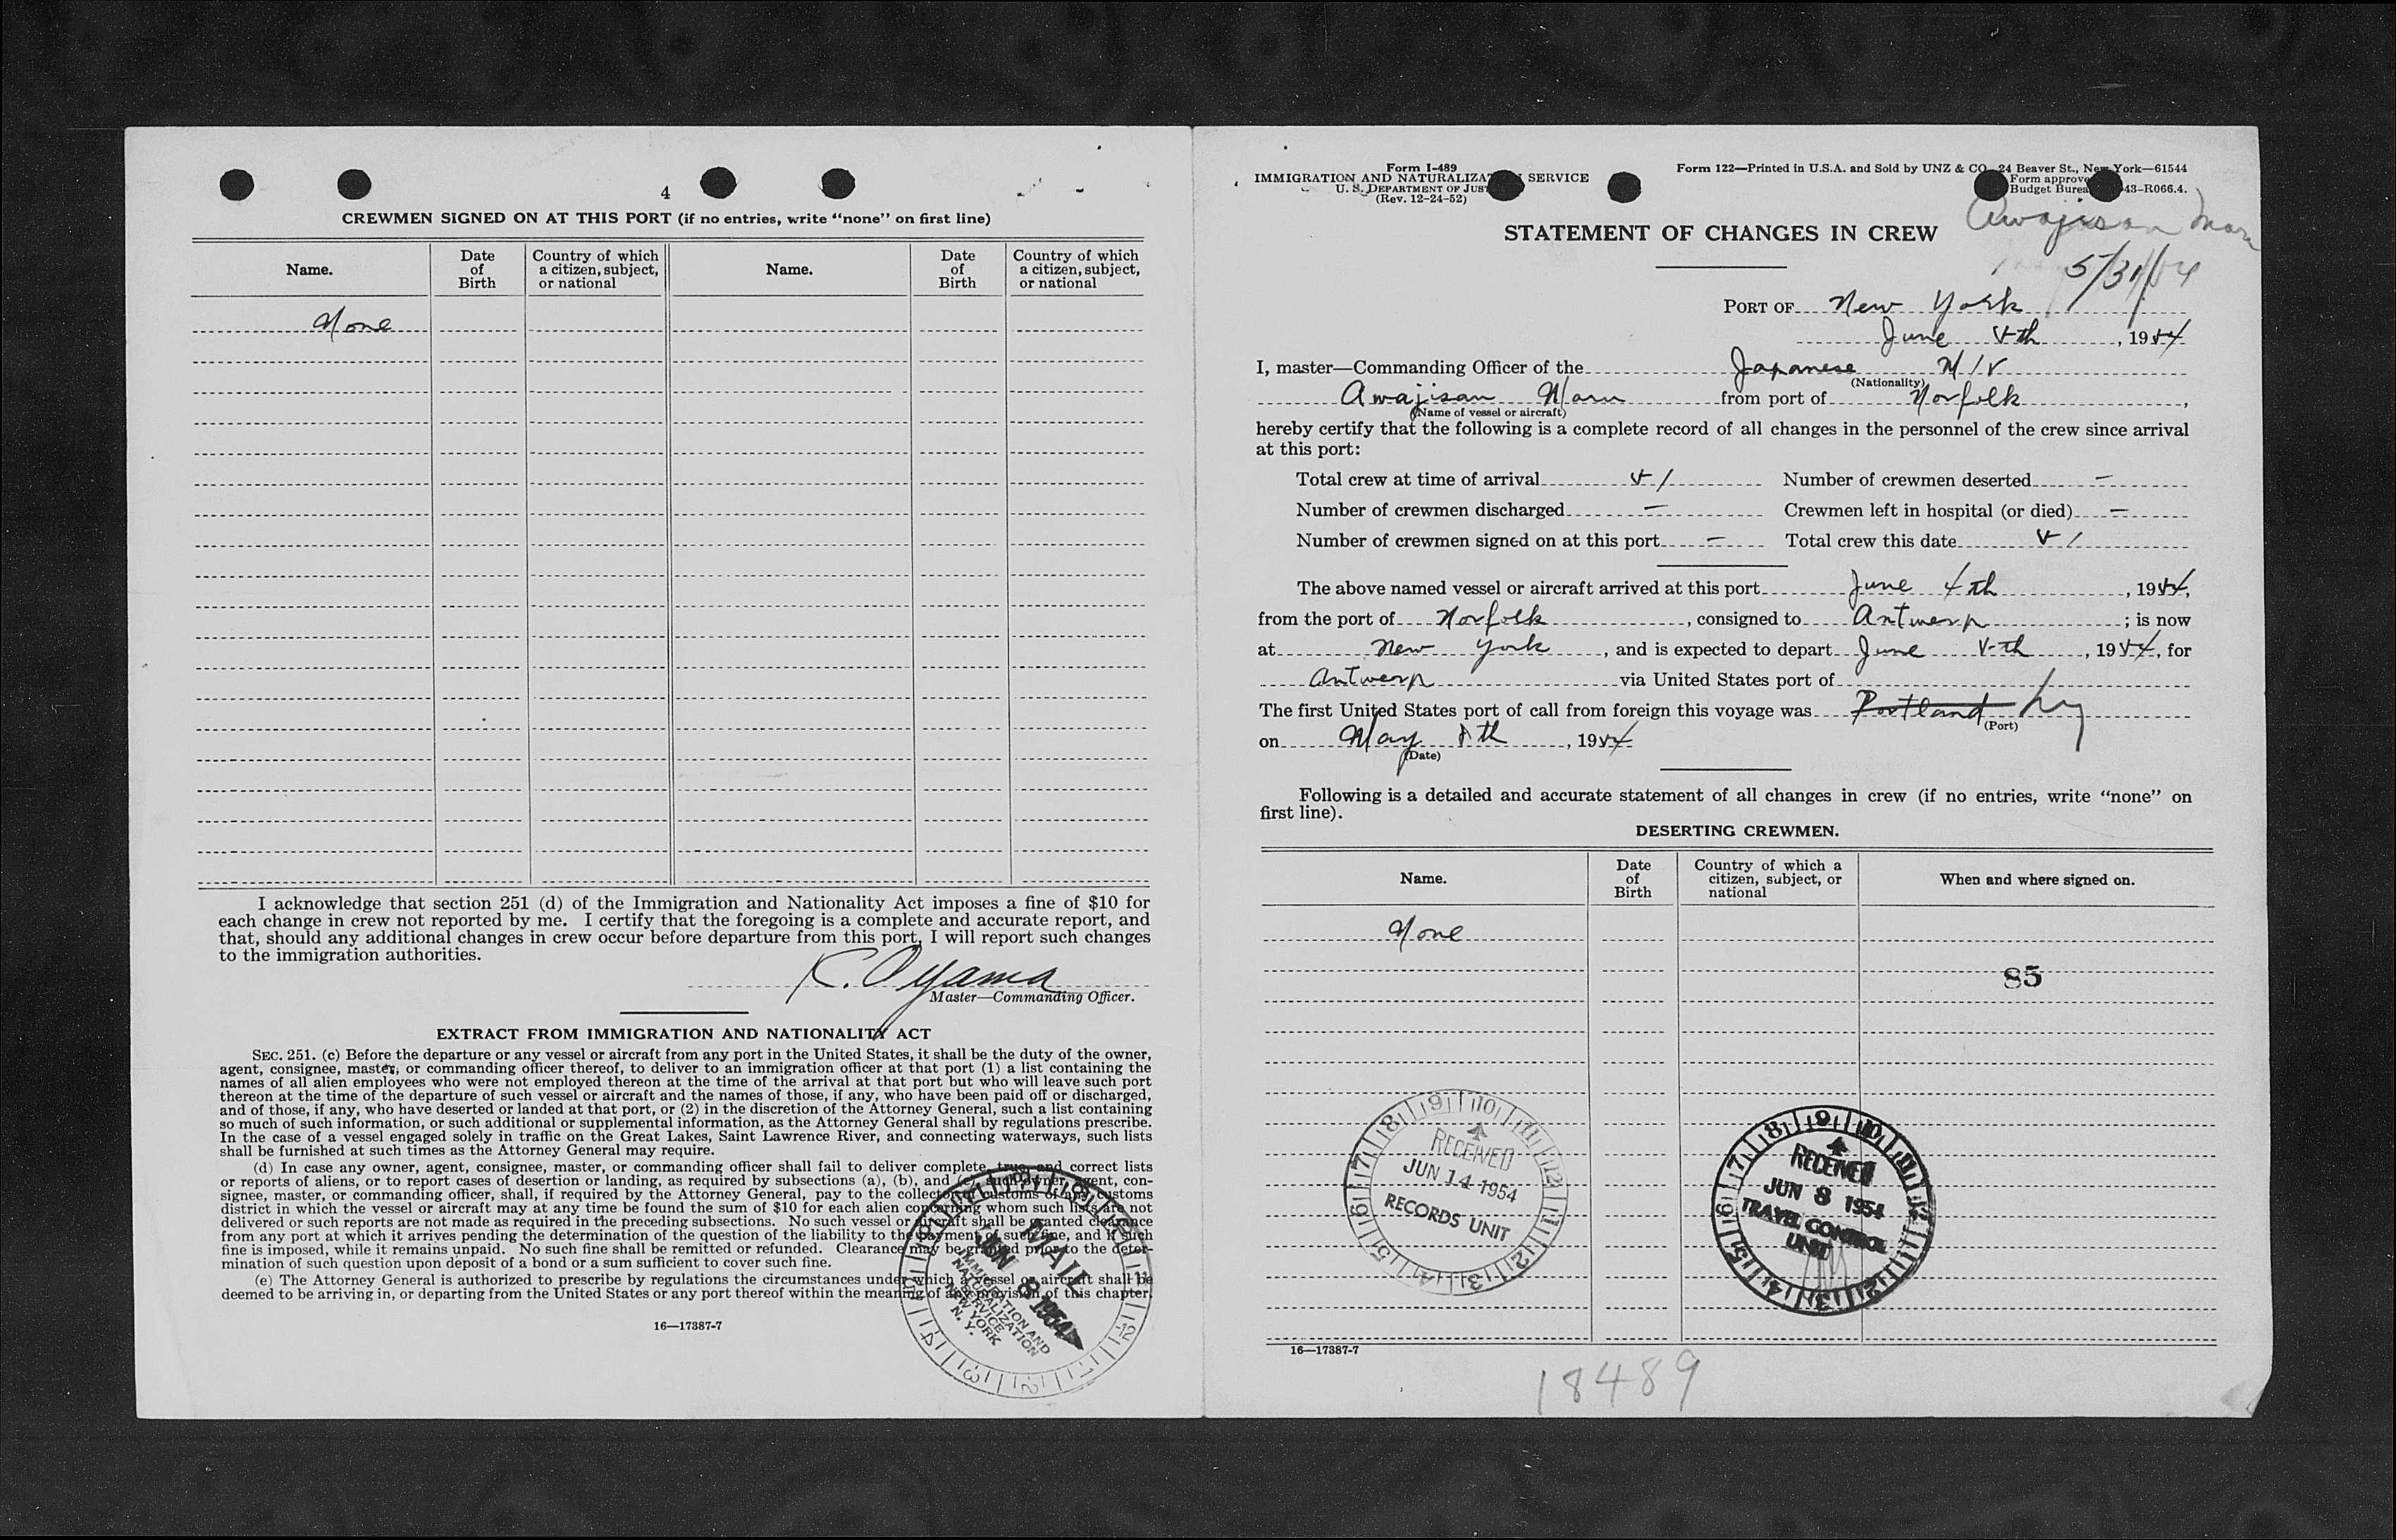 4
CREWMEN SIGNED ON AT THIS PORT (if no entries, write “none” on first line)
Name. Date of Birth Country of which a citizen, subject, or national Name. Date of Birth Country of which a citizen, subject, or national
None
I acknowledge that section 251 (d) of the Immigration and Nationality Act imposes a fine of $10 for
each change in crew not reported by me. I certify that the foregoing is a complete and accurate report, and
that, should any additional changes in crew occur before departure from this port, I will report such changes
to the immigration authorities.
K. Oyama
Master—Commanding Officer.
EXTRACT FROM IMMIGRATION AND NATIONALITY ACT
SEC. 251. (c) Before the departure or any vessel or aircraft from any port in the United States, it shall be the duty of the owner,
agent, consignee, master, or commanding officer thereof, to deliver to an immigration officer at that port (1) a list containing the
names of all alien employees who were not employed thereon at the time of the arrival at that port but who will leave such port
thereon at the time of the departure of such vessel or aircraft and the names of those, if any, who have been paid off or discharged,
and of those, if any, who have deserted or landed at that port, or (2) in the discretion of the Attorney General, such a list containing
so much of such information, or such additional or supplemental information, as the Attorney General shall by regulations prescribe.
In the case of a vessel engaged solely in traffic on the Great Lakes, Saint Lawrence River, and connecting waterways, such lists
shall be furnished at such times as the Attorney General may require.
(d) In case any owner, agent, consignee, master, or commanding officer shall fail to deliver complete, true, and correct lists
or reports of aliens, or to report cases of desertion or landing, as required by subsections (a), (b), and (c), such owner, agent, con-
signee, master, or commanding officer, shall, if required by the Attorney General, pay to the collector of customs of any customs
district in which the vessel or aircraft may at any time be found the sum of $10 for each alien concerning whom such lists are not
delivered or such reports are not made as required in the preceding subsections. No such vessel or aircraft shall be granted clearance
from any port at which it arrives pending the determination of the question of the liability to the payment of such fine, and if such
fine is imposed, while it remains unpaid. No such fine shall be remitted or refunded. Clearance may be granted prior to the deter-
mination of such question upon deposit of a bond or a sum sufficient to cover such fine.
(e) The Attorney General is authorized to prescribe by regulations the circumstances under which a vessel or aircraft shall be
deemed to be arriving in, or departing from the United States or any port thereof within the meaning of any provision of this chapter.
16—17387-7
MAIL
JUN 8 1954
IMMIGRATION AND
NATURALIZATION
SERVICE
NEW YORK
N. Y.
Form I-489
IMMIGRATION AND NATURALIZATION SERVICE
U. S. DEPARTMENT OF JUS
(Rev. 12-24-52)
Form 122—Printed in U.S.A. and Sold by UNZ & CO 24 Beaver St., New York—61544
Form approve
Budget Burea 43-R066.4.
Awajisan Maru
5/31/54
STATEMENT OF CHANGES IN CREW
PORT OF New York
June 5th, 1954
I, master—Commanding Officer of the Japanese M/V
(Nationality)
Awajisan Maru from port of Norfolk,
(Name of vessel or aircraft)
hereby certify that the following is a complete record of all changes in the personnel of the crew since arrival
at this port:
Total crew at time of arrival 51 Number of crewmen deserted —
Number of crewmen discharged — Crewmen left in hospital (or died) —
Number of crewmen signed on at this port — Total crew this date 51
The above named vessel or aircraft arrived at this port June 4th, 1954,
from the port of Norfolk, consigned to Antwerp; is now
at New York, and is expected to depart June 5th, 1954, for
Antwerp via United States port of
The first United States port of call from foreign this voyage was Portland
(Port)
on May 8th, 1954
(Date)
Following is a detailed and accurate statement of all changes in crew (if no entries, write “none” on
first line).
DESERTING CREWMEN.
Name. Date of Birth Country of which a citizen, subject, or national When and where signed on.
None
85
RECEIVED
JUN 14 1954
RECORDS UNIT
RECEIVED
JUN 8 1954
TRAVEL CONTROL
UNIT
16—17387-7
18489